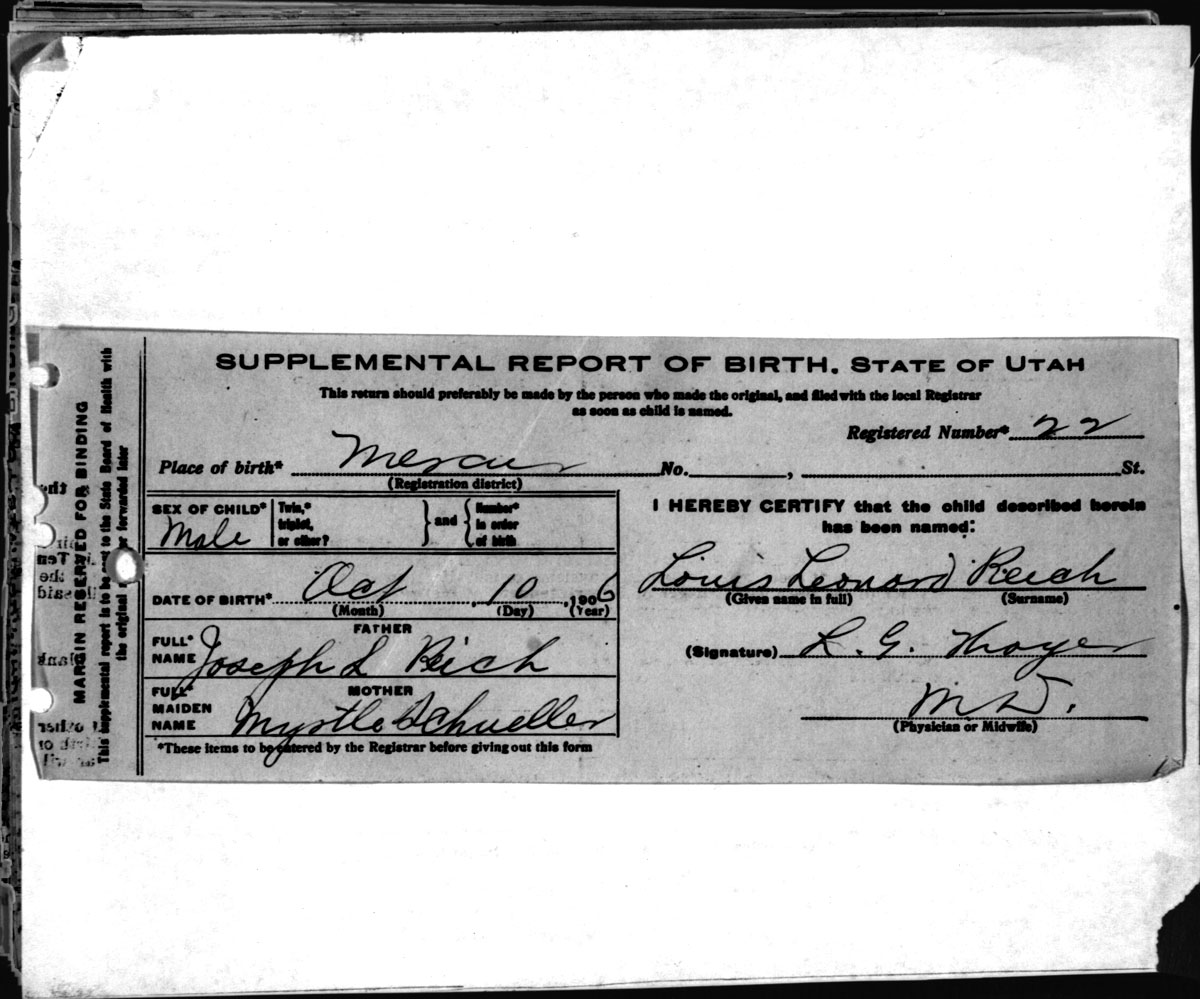 SUPPLEMENTAL REPORT OF BIRTH. STATE OF UTAH
This return should preferably be made by the person who made the original, and filed with the local Registrar
as soon as child is named.
Registered Number* 22
Place of birth* Mercur No. , St.
(Registration district)
SEX OF CHILD* Male
Twin,* triplet, or other? } and { Number* in order of birth
DATE OF BIRTH* Oct , 10 , 1906
(Month) (Day) (Year)
FATHER
FULL* NAME Joseph L Reich
MOTHER
FULL* MAIDEN NAME Myrtle Schueller
*These items to be entered by the Registrar before giving out this form
I HEREBY CERTIFY that the child described herein
has been named:
Louis Leonard Reich
(Given name in full) (Surname)
(Signature) L. G. Thayer
M.D.
(Physician or Midwife)
MARGIN RESERVED FOR BINDING
This supplemental report is to be sent to the State Board of Health with
the original or forwarded later